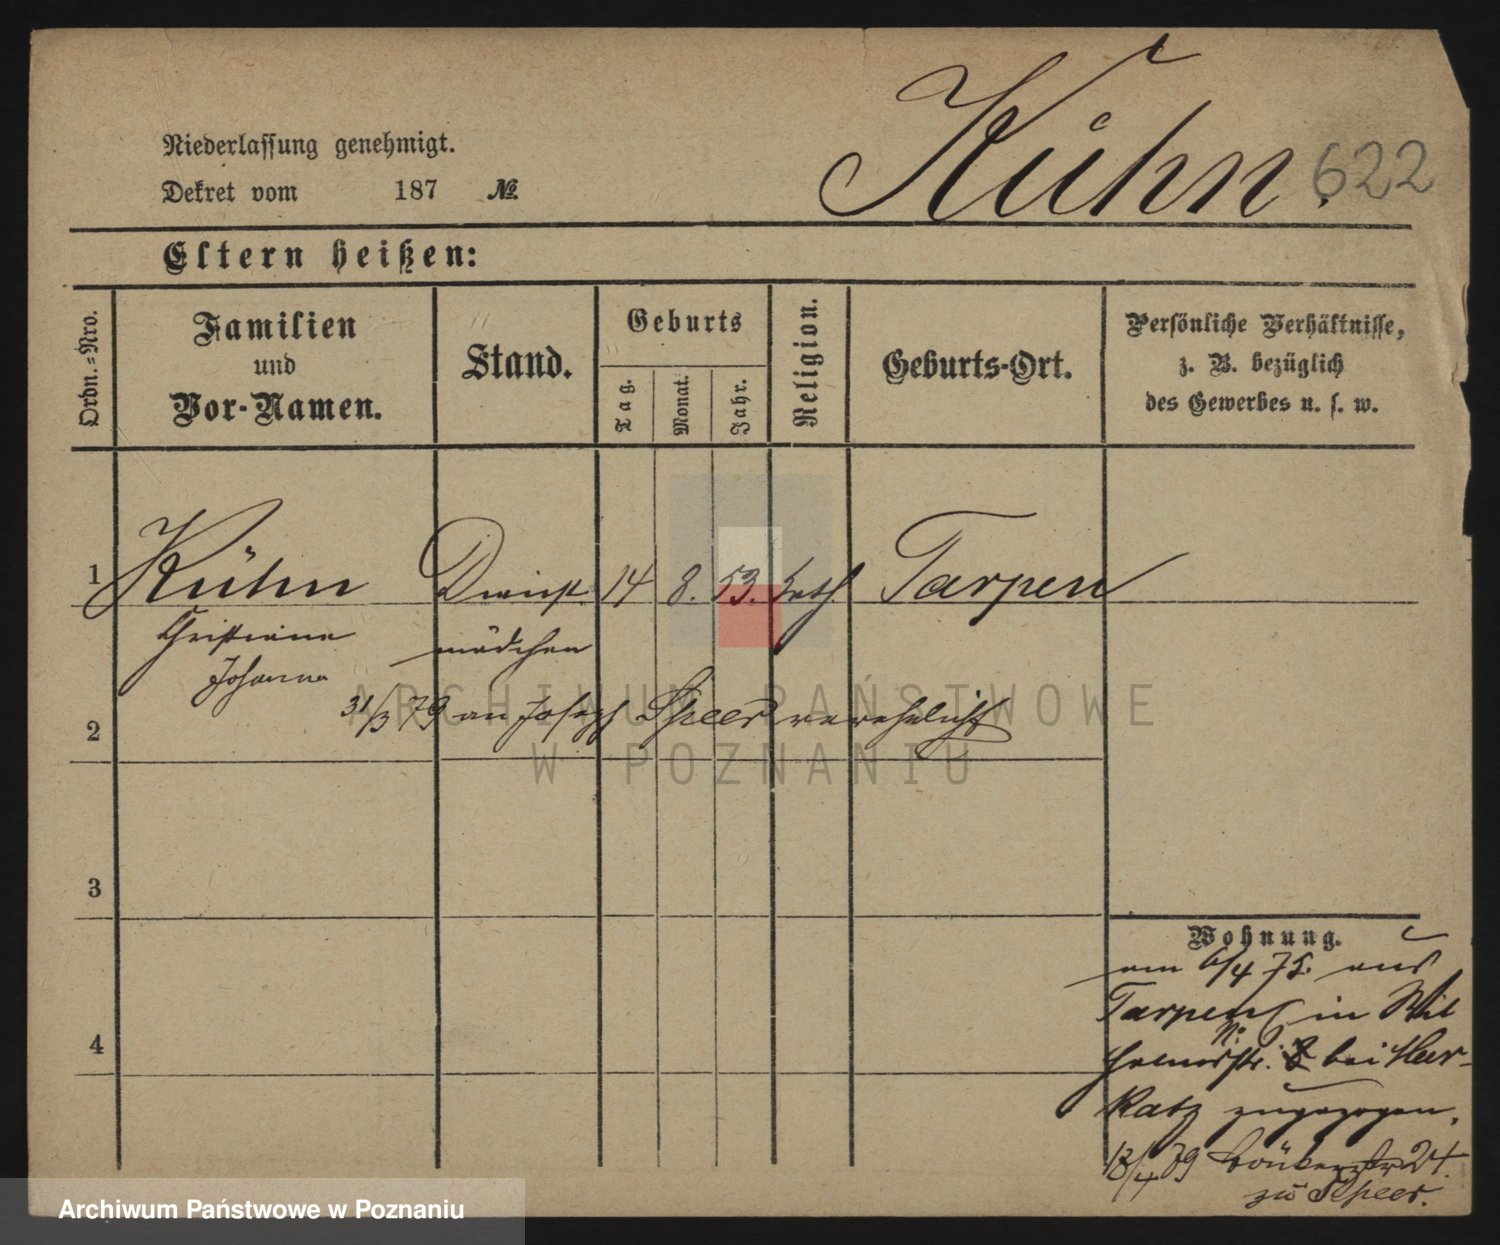 Kühn.
622
Niederlassung genehmigt.
Dekret vom 187 №
Eltern heißen:
Ordn.-Nro.
Familien
und
Vor-Namen.
Stand.
Geburts
Tag.
Monat.
Jahr.
Religion.
Geburts-Ort.
Persönliche Verhältnisse,
z. B. bezüglich
des Gewerbes u. s. w.
1 Kühn Dienst 14 8. 53. kath. Tarpen
Christiane mädchen
Johanna
31/3 79 an Joseph Speer verehelicht
2
3
4
Wohnung.
am 6/4 75. aus
Tarpen in Wil
helmsstr. No: 8 bei
zugezogen.
13/4 79 24.
zu Speer.
ARCHIWUM PAŃSTWOWE
W POZNANIU
Archiwum Państwowe w Poznaniu